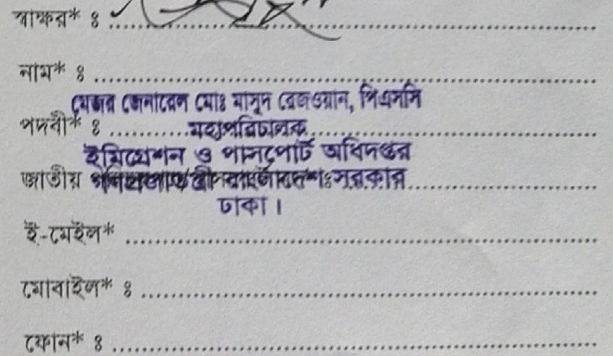 স্বাক্ষর* ঃ
নাম* ঃ
মেজর জেনারেল মোঃ মাসুদ রেজওয়ান, পিএসসি
পদবী* ঃ
মহাপরিচালক
ইমিগ্রেশন ও পাসপোর্ট অধিদপ্তর
জাতীয়
সরকার
ঢাকা।
ই-মেইল*
মোবাইল* ঃ
ফোন* ঃ